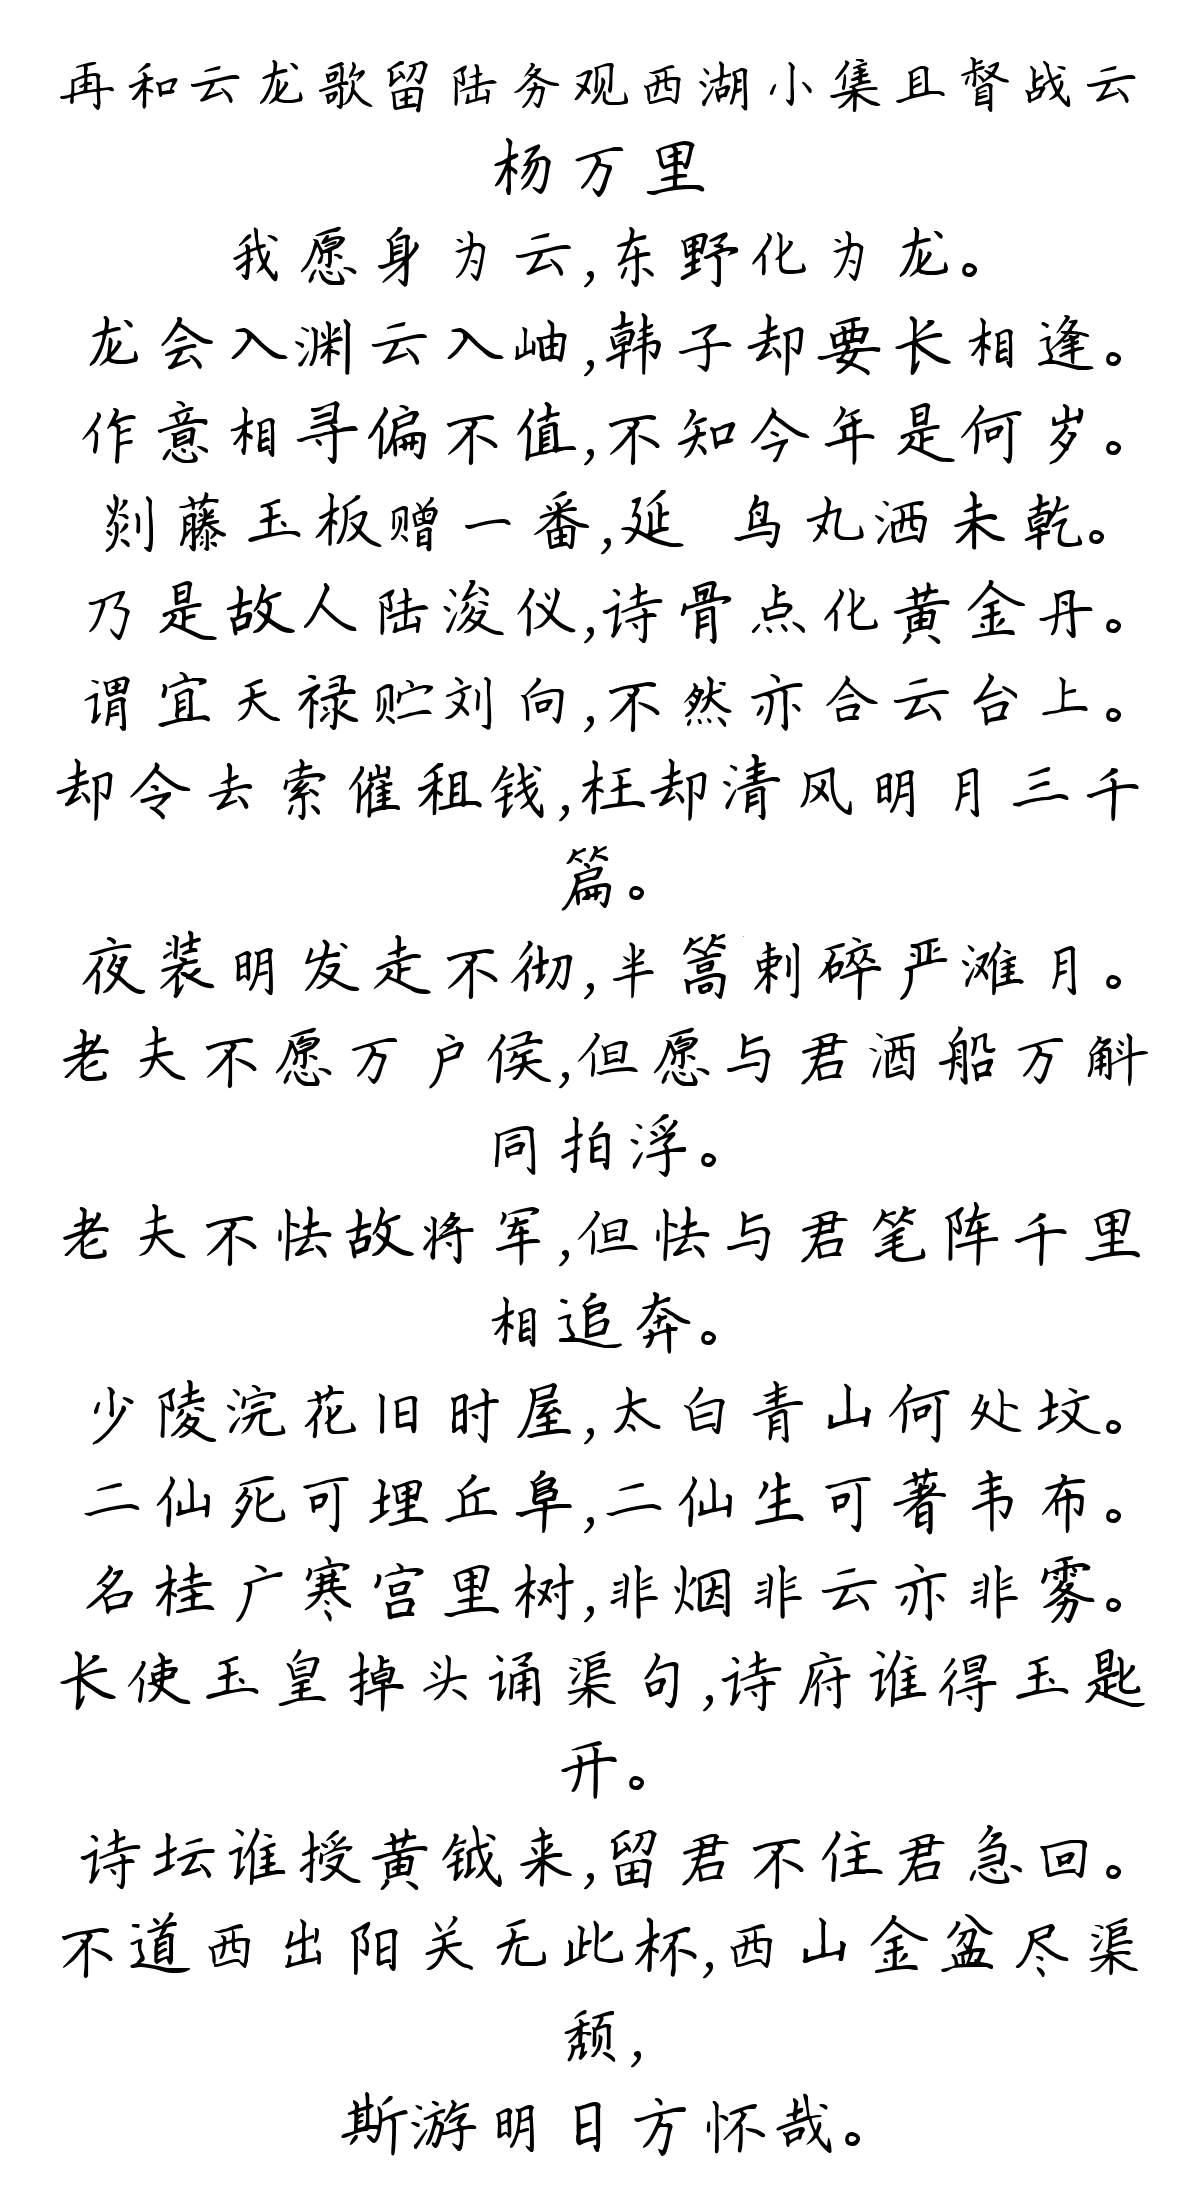 再和云龙歌留陆务观西湖小集且督战云
杨万里
我愿身为云,东野化为龙。
龙会入渊云入岫,韩子却要长相逢。
作意相寻偏不值,不知今年是何岁。
剡藤玉板赠一番,延 鸟丸洒未乾。
乃是故人陆浚仪,诗骨点化黄金丹。
谓宜天禄贮刘向,不然亦合云台上。
却令去索催租钱,枉却清风明月三千
篇。
夜装明发走不彻,半篙刺碎严滩月。
老夫不愿万户侯,但愿与君酒船万斛
同拍浮。
老夫不怯故将军,但怯与君笔阵千里
相追奔。
少陵浣花旧时屋,太白青山何处坟。
二仙死可埋丘阜,二仙生可著韦布。
名桂广寒宫里树,非烟非云亦非雾。
长使玉皇掉头诵渠句,诗府谁得玉匙
开。
诗坛谁授黄钺来,留君不住君急回。
不道西出阳关无此杯,西山金盆尽渠
颓,
斯游明日方怀哉。